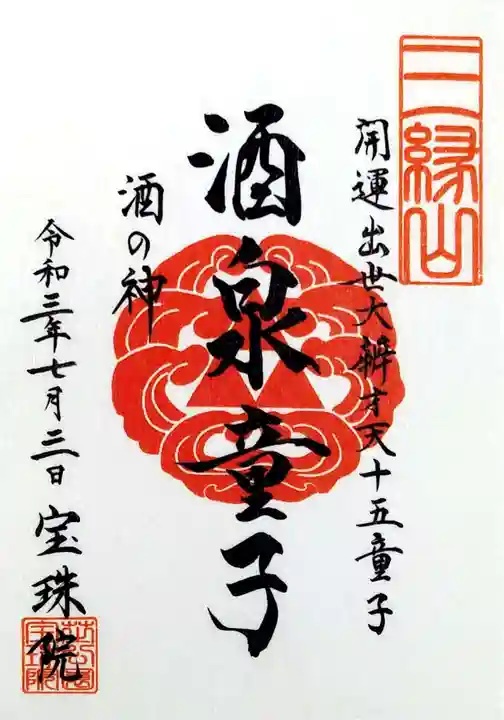 三縁山
開運出世大辨才天十五童子
酒泉童子
酒の神
令和三年七月三日 宝珠院